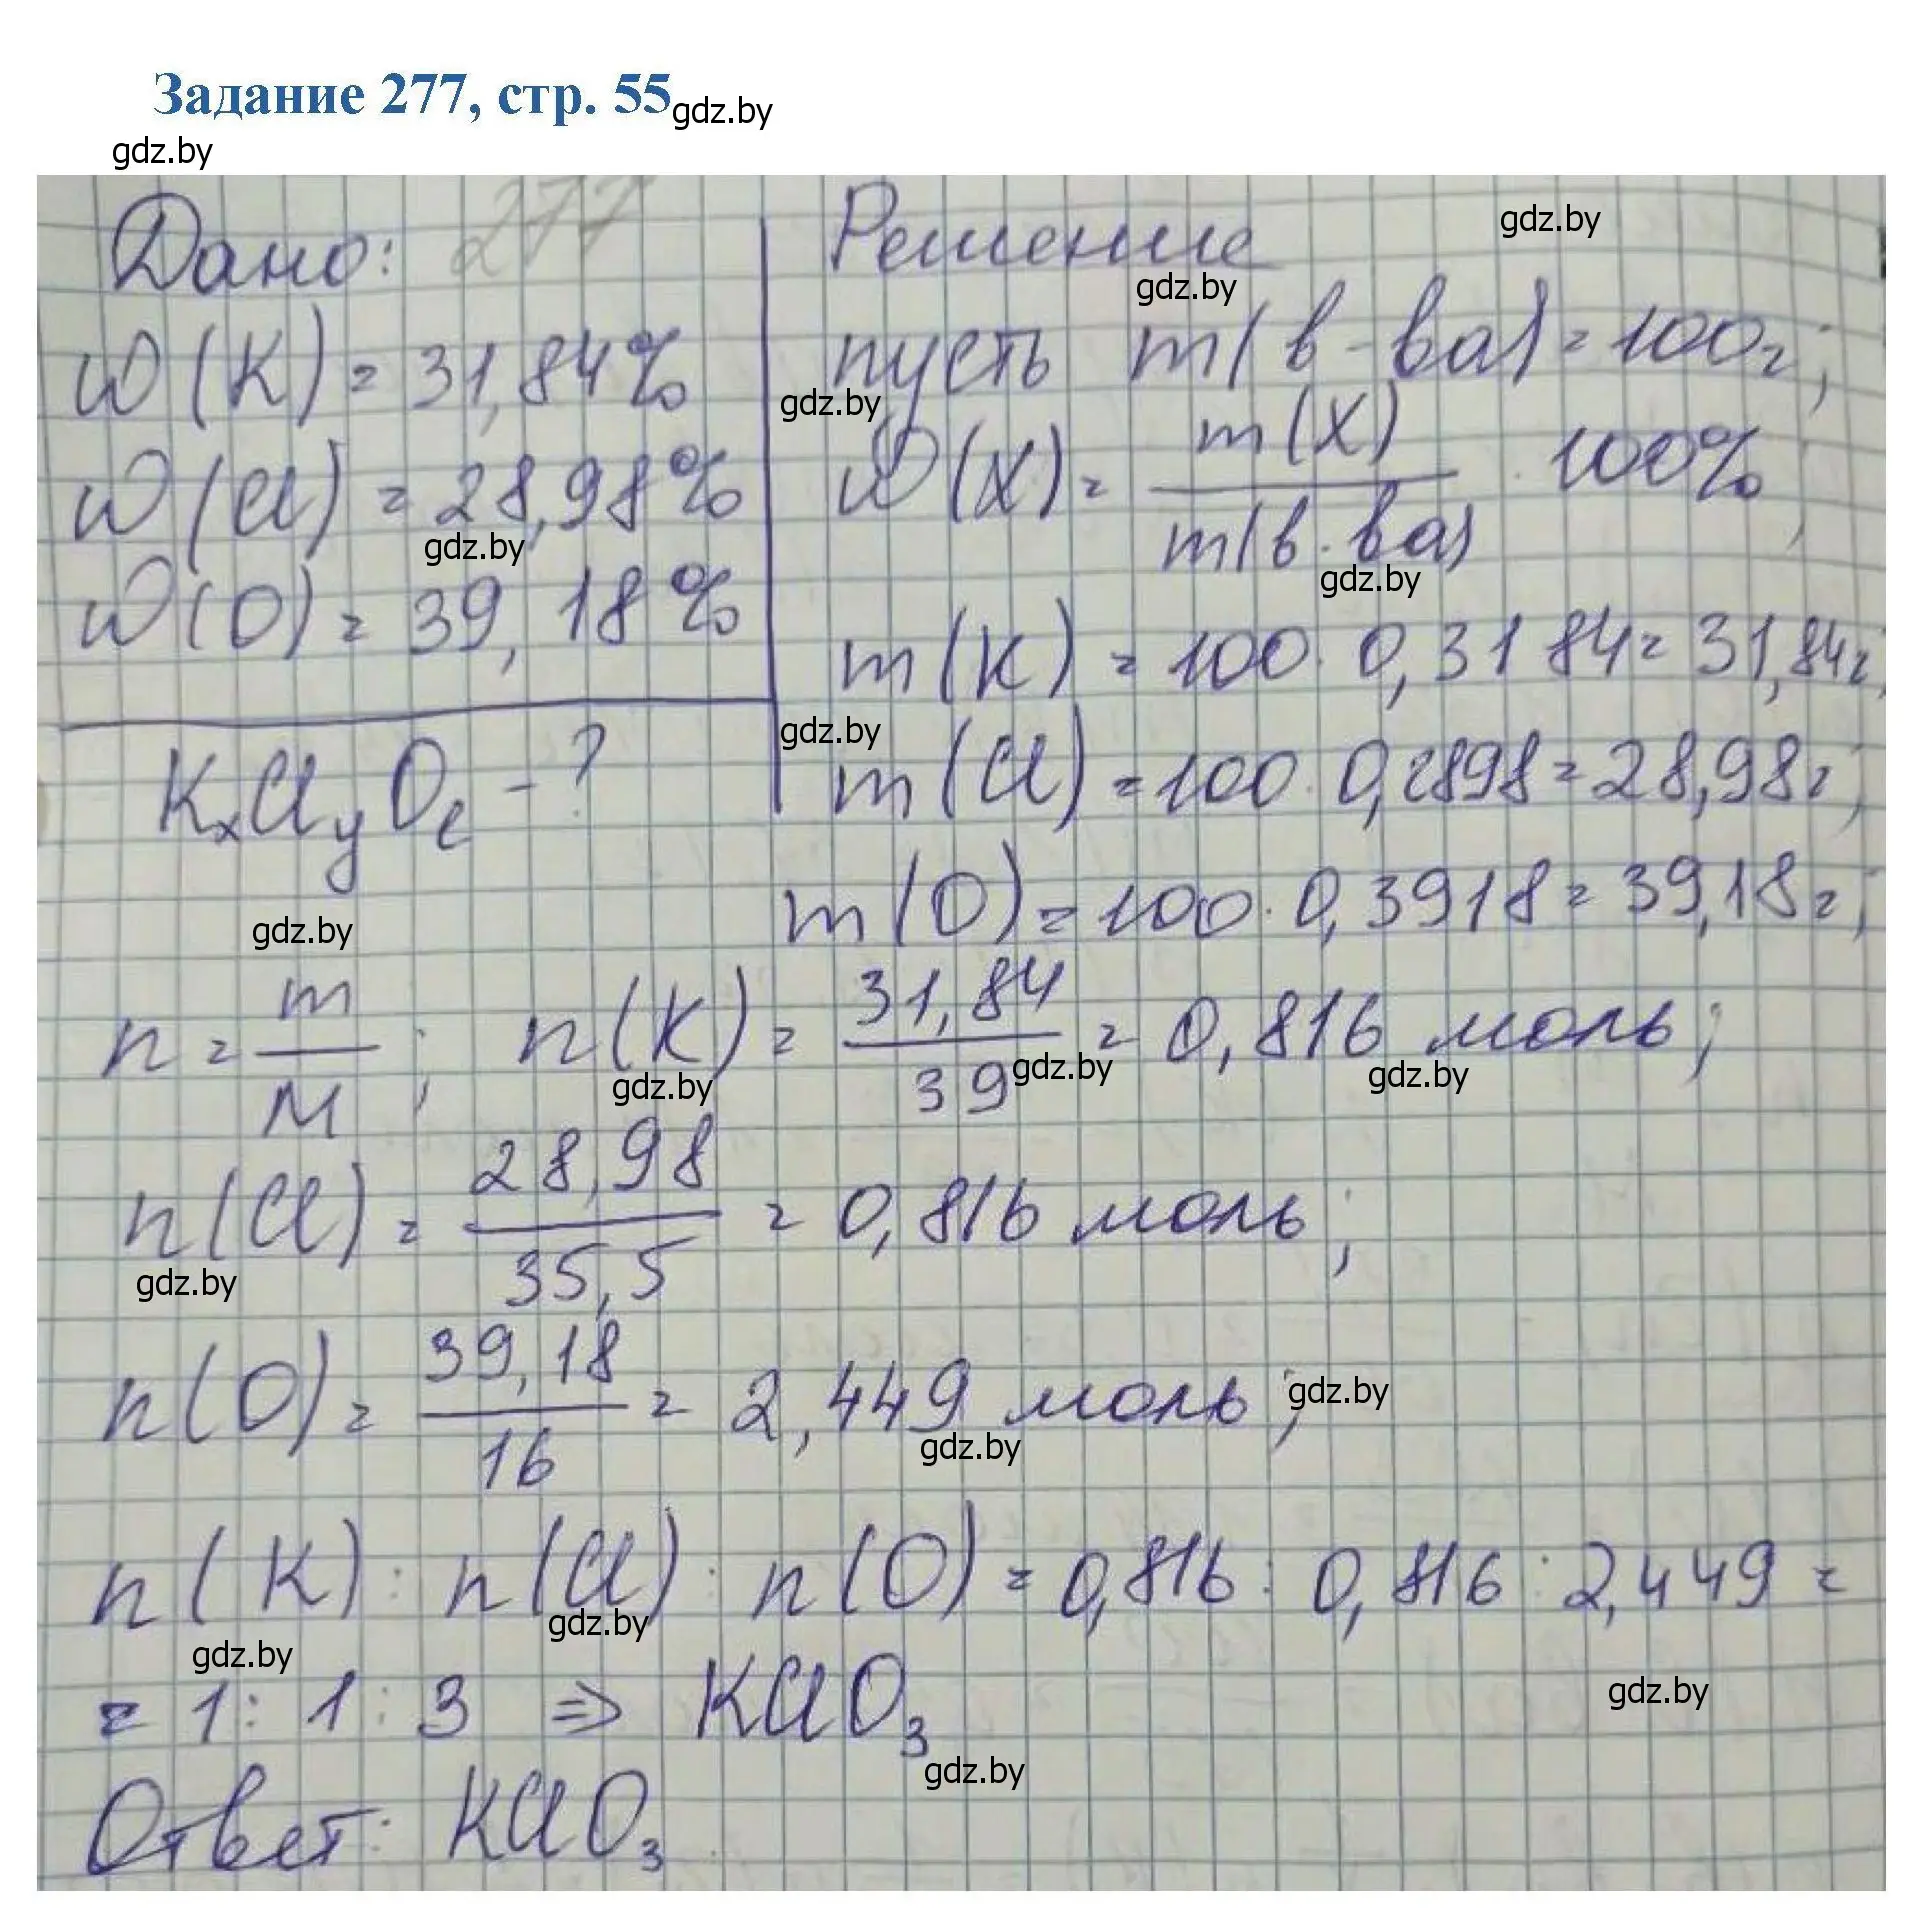 Задание 277, стр. 55
gdz.by
gdz.by
Дано:
277
w(K) = 31,84%
w(Cl) = 28,98%
gdz.by
w(O) = 39,18%
KxClyOz - ?
gdz.by
Решение
gdz.by
gdz.by
пусть m(в-ва) = 100г;
gdz.by
w(X) = m(X) / m(в-ва) · 100%;
gdz.by
m(K) = 100 · 0,3184 = 31,84г;
gdz.by
m(Cl) = 100 · 0,2898 = 28,98г;
m(O) = 100 · 0,3918 = 39,18г;
n = m / M; n(K) = 31,84 / 39 = 0,816 моль;
gdz.by
gdz.by
gdz.by
n(Cl) = 28,98 / 35,5 = 0,816 моль;
gdz.by
n(O) = 39,18 / 16 = 2,449 моль;
gdz.by
gdz.by
n(K) : n(Cl) : n(O) = 0,816 : 0,816 : 2,449 =
gdz.by
gdz.by
= 1 : 1 : 3 => KClO3
gdz.by
gdz.by
Ответ: KClO3